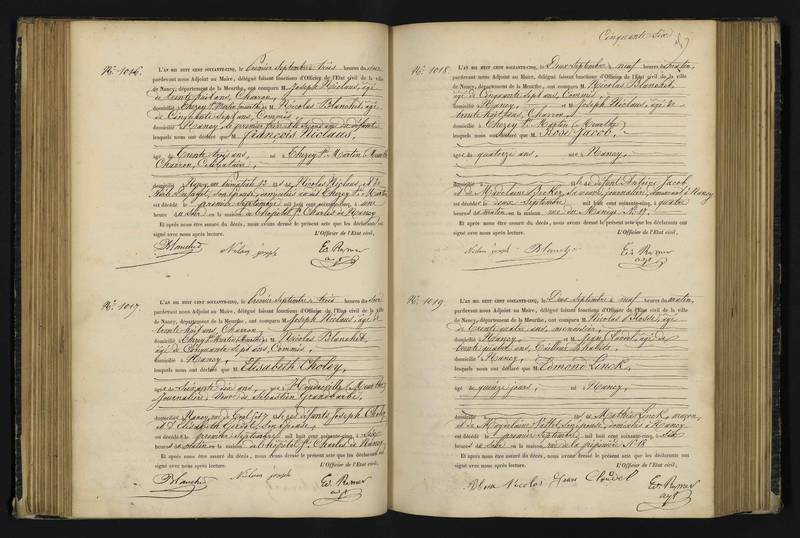 N° 1016.
L'AN MIL HUIT CENT SOIXANTE-CINQ, le Premier Septembre à trois heures du soir
pardevant nous Adjoint au Maire, délégué faisant fonctions d'Officier de l'Etat civil de la ville
de Nancy, département de la Meurthe, ont comparu M. Joseph Niclaus, âgé
de trente huit ans, Charron,
domicilié à Chezey St Martin (Meurthe) et M. Nicolas Blanchet, âgé
de Cinquante Sept ans, Commis,
domicilié à Nancy, le premier frère
lesquels nous ont déclaré que M. François Niclaus,
âgé de Trente trois ans, né à Chezey St Martin Meurthe
Charron, Célibataire,
domicilié à Nancy, Nicolas Niclaus, et de
est décédé le premier Septembre mil huit cent soixante-cinq, à une
heure du soir en la maison de l'hôpital St Charles de Nancy
Et après nous être assuré du décès, nous avons dressé le présent acte que les déclarants ont
signé avec nous après lecture.
L'Officier de l'Etat civil,
Blanchet Niclaus joseph Ed. Rymer
N° 1017.
L'AN MIL HUIT CENT SOIXANTE-CINQ, le Premier Septembre à trois heures du soir
pardevant nous Adjoint au Maire, délégué faisant fonctions d'Officier de l'Etat civil de la ville
de Nancy, département de la Meurthe, ont comparu M. Joseph Niclaus, âgé de
trente huit ans, Charron,
domicilié à Chezey St Martin (Meurthe) et M. Nicolas Blanchet,
âgé de Cinquante Sept ans, Commis,
domicilié à Nancy,
lesquels nous ont déclaré que M. Elisabeth Choley,
âgée de Soixante dix ans, née à
journalière, Veuve de Sébastien
domiciliée à Nancy, défunts Joseph Choley
et d'Elisabeth son épouse,
est décédée le premier Septembre mil huit cent soixante-cinq, à six
heures du matin en la maison de l'hôpital St Charles de Nancy
Et après nous être assuré du décès, nous avons dressé le présent acte que les déclarants ont
signé avec nous après lecture.
L'Officier de l'Etat civil,
Blanchet Niclaus joseph Ed. Rymer
Cinquante-Six
N° 1018.
L'AN MIL HUIT CENT SOIXANTE-CINQ, le Deux Septembre à neuf heures du matin,
pardevant nous Adjoint au Maire, délégué faisant fonctions d'Officier de l'Etat civil de la ville
de Nancy, département de la Meurthe, ont comparu M. Nicolas Blanchet,
âgé de Cinquante Sept ans, Commis,
domicilié à Nancy, et M. Joseph Niclaus, âgé de
trente huit ans, Charron,
domicilié à Chezey St Martin (Meurthe)
lesquels nous ont déclaré que M. Rose Jacob,
âgée de quatorze ans, née à Nancy,
domiciliée à et de défunt Antoine Jacob
et de Madelaine Becker, sa veuve, journalière, demeurant à Nancy
est décédée le deux Septembre mil huit cent soixante-cinq, à quatre
heures du matin en la maison rue du Manège N° 19.
Et après nous être assuré du décès, nous avons dressé le présent acte que les déclarants ont
signé avec nous après lecture.
L'Officier de l'Etat civil,
Niclaus joseph Blanchet Ed. Rymer
N° 1019.
L'AN MIL HUIT CENT SOIXANTE-CINQ, le Deux Septembre à neuf heures du matin,
pardevant nous Adjoint au Maire, délégué faisant fonctions d'Officier de l'Etat civil de la ville
de Nancy, département de la Meurthe, ont comparu M. Nicolas âgé
de Trente quatre ans, menuisier,
domicilié à Nancy, et M. Jean Claudel, âgé de
ans, Tailleur
domicilié à Nancy,
lesquels nous ont déclaré que M. Edmond Linck,
âgé de quinze jours, né à Nancy,
domicilié à et de Mathias Linck, maçon,
et de Magdelaine son épouse, domiciliés à Nancy
est décédé le premier Septembre mil huit cent soixante-cinq, à six
heures du soir en la maison rue de la N° 18
Et après nous être assuré du décès, nous avons dressé le présent acte que les déclarants ont
signé avec nous après lecture.
L'Officier de l'Etat civil,
Nicolas Jean Claudel Ed. Rymer